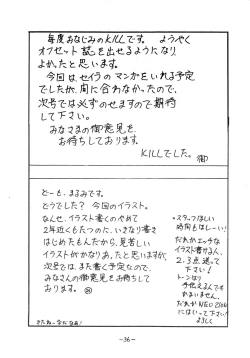 毎度おなじみのKILLです。 ようやく
オフセット誌を出せるようになり
よかったと思います。
今回は、セイラのマンガをいれる予定
でしたが、間に合わなかったので、
次号では必ずのせますので期待
して下さい。
みなさまの御意見を
お待ちしております。
KILLでした。
どーも、まるみです。
どうでした? 今回のイラスト。
なんせ、イラスト書くのやめて
2年近くもたつのに、いきなり書き
はじめたもんだから、見苦しい
イラストがかなりあったと思いますが、
次号では、また書く予定なので、
みなさんの御意見をお待ちして
おります。
きたねーなだなあ!
・スタッフほしい
時間もほしーい!
だれかエッチな
イラスト書けるひと、
2.3点送って
下さい!
トーンはり
手伝える人でも
かまいません。
だれか NEO ZEON
にはいって下さい!
よろしく
-36-